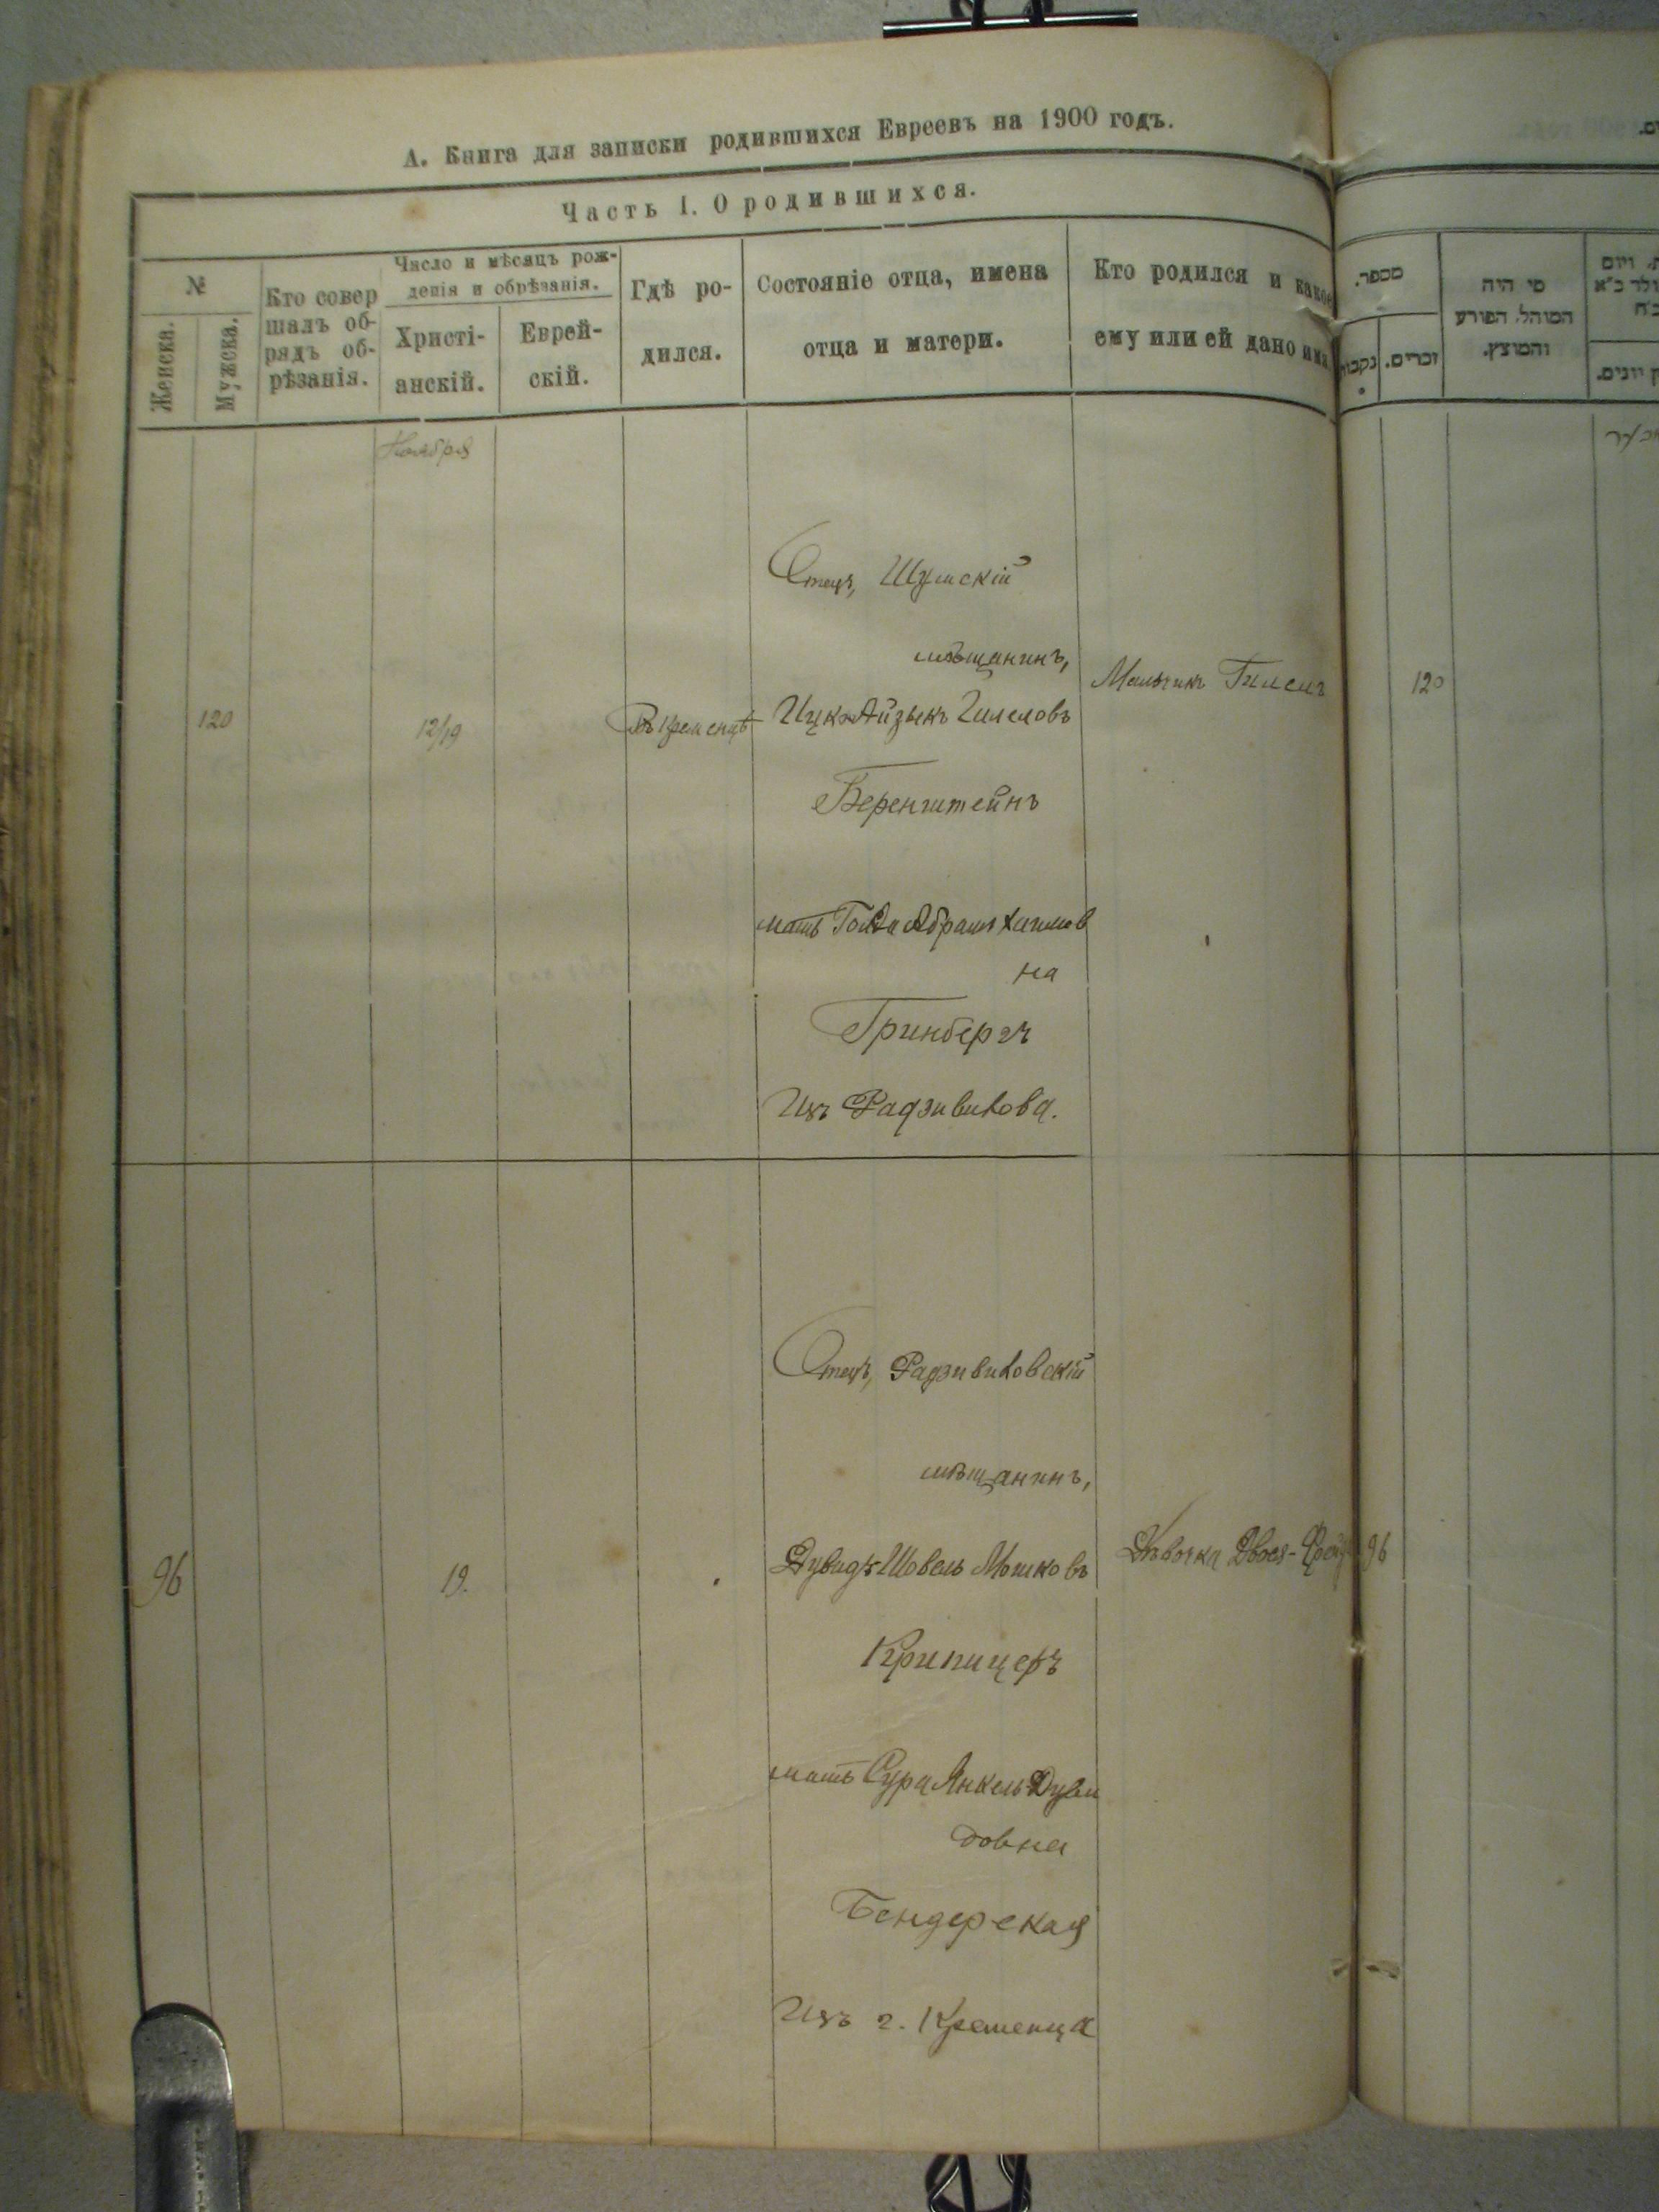 А. Книга для записки родившихся Евреевъ на 1900 годъ.
Часть I. О родившихся.
№
Женска.
Мужска.
Кто совер
шалъ об-
рядъ об-
рѣзанія.
Число и мѣсяцъ рож-
денія и обрѣзанія.
Христі-
анскій.
Еврей-
скій.
Гдѣ ро-
дился.
Состояніе отца, имена
отца и матери.
Кто родился и какое
ему или ей дано имя
מספר.
נקבות
זכרים.
מי היה
המוהל, הפורע
והמוצץ.
Ноября
120
12/19
Въ Кременцѣ
Отецъ, Шумскій
мѣщанинъ,
Ицко Айзыкъ Гилеловъ
Беренштейнъ
мать Голда Абрамъ Хаимов
на
Гринбергъ
Изъ Радзивилова.
Мальчикъ Гилель
120
96
19.
Отецъ, Радзивиловскій
мѣщанинъ,
Дувидъ Шовель Мошковъ
Крипицеръ
мать Сура Янкель Дуви
довна
Бендерская
Изъ г. Кременца
Дѣвочка Двоя-
96